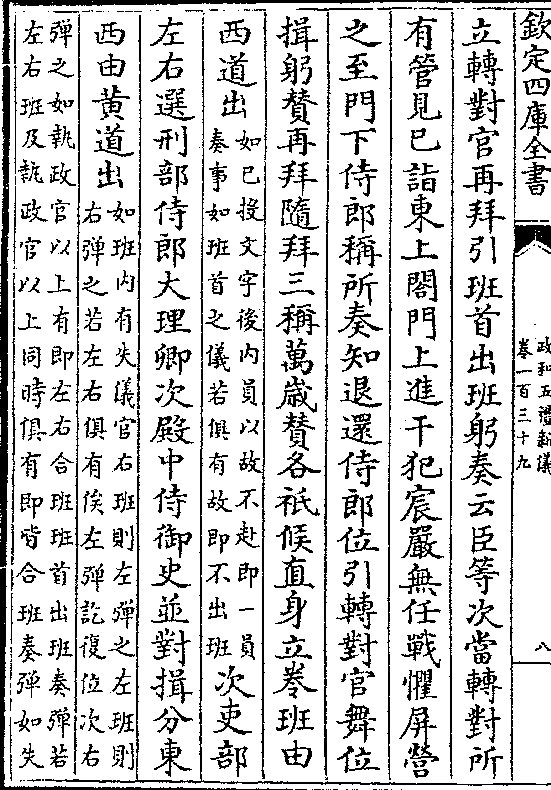 欽定四庫全書
政和五禮新儀
卷一百三十九
八
立轉對官再拜引班首出班躬奏云臣等次當轉對所
有管見已詣東上閤門上進干犯宸嚴無任戰懼屏營
之至門下侍郎稱所奏知退還侍郎位引轉對官舞位
揖躬賛再拜隨拜三稱萬歲賛各祗候直身立卷班由
西道出
如已投文字後内員以故不赴即一員
奏事如班首之儀若俱有故即不出班
次吏部
左右選刑部侍郎大理卿次殿中侍御史並對揖分東
西由黄道出
如班内有失儀官右班則左彈之左班則
右彈之若左右俱有俟左彈訖復位次右
彈之如執政官以上有即左右合班班首出班奏彈若
左右班及執政官以上同時俱有即皆合班奏彈如失